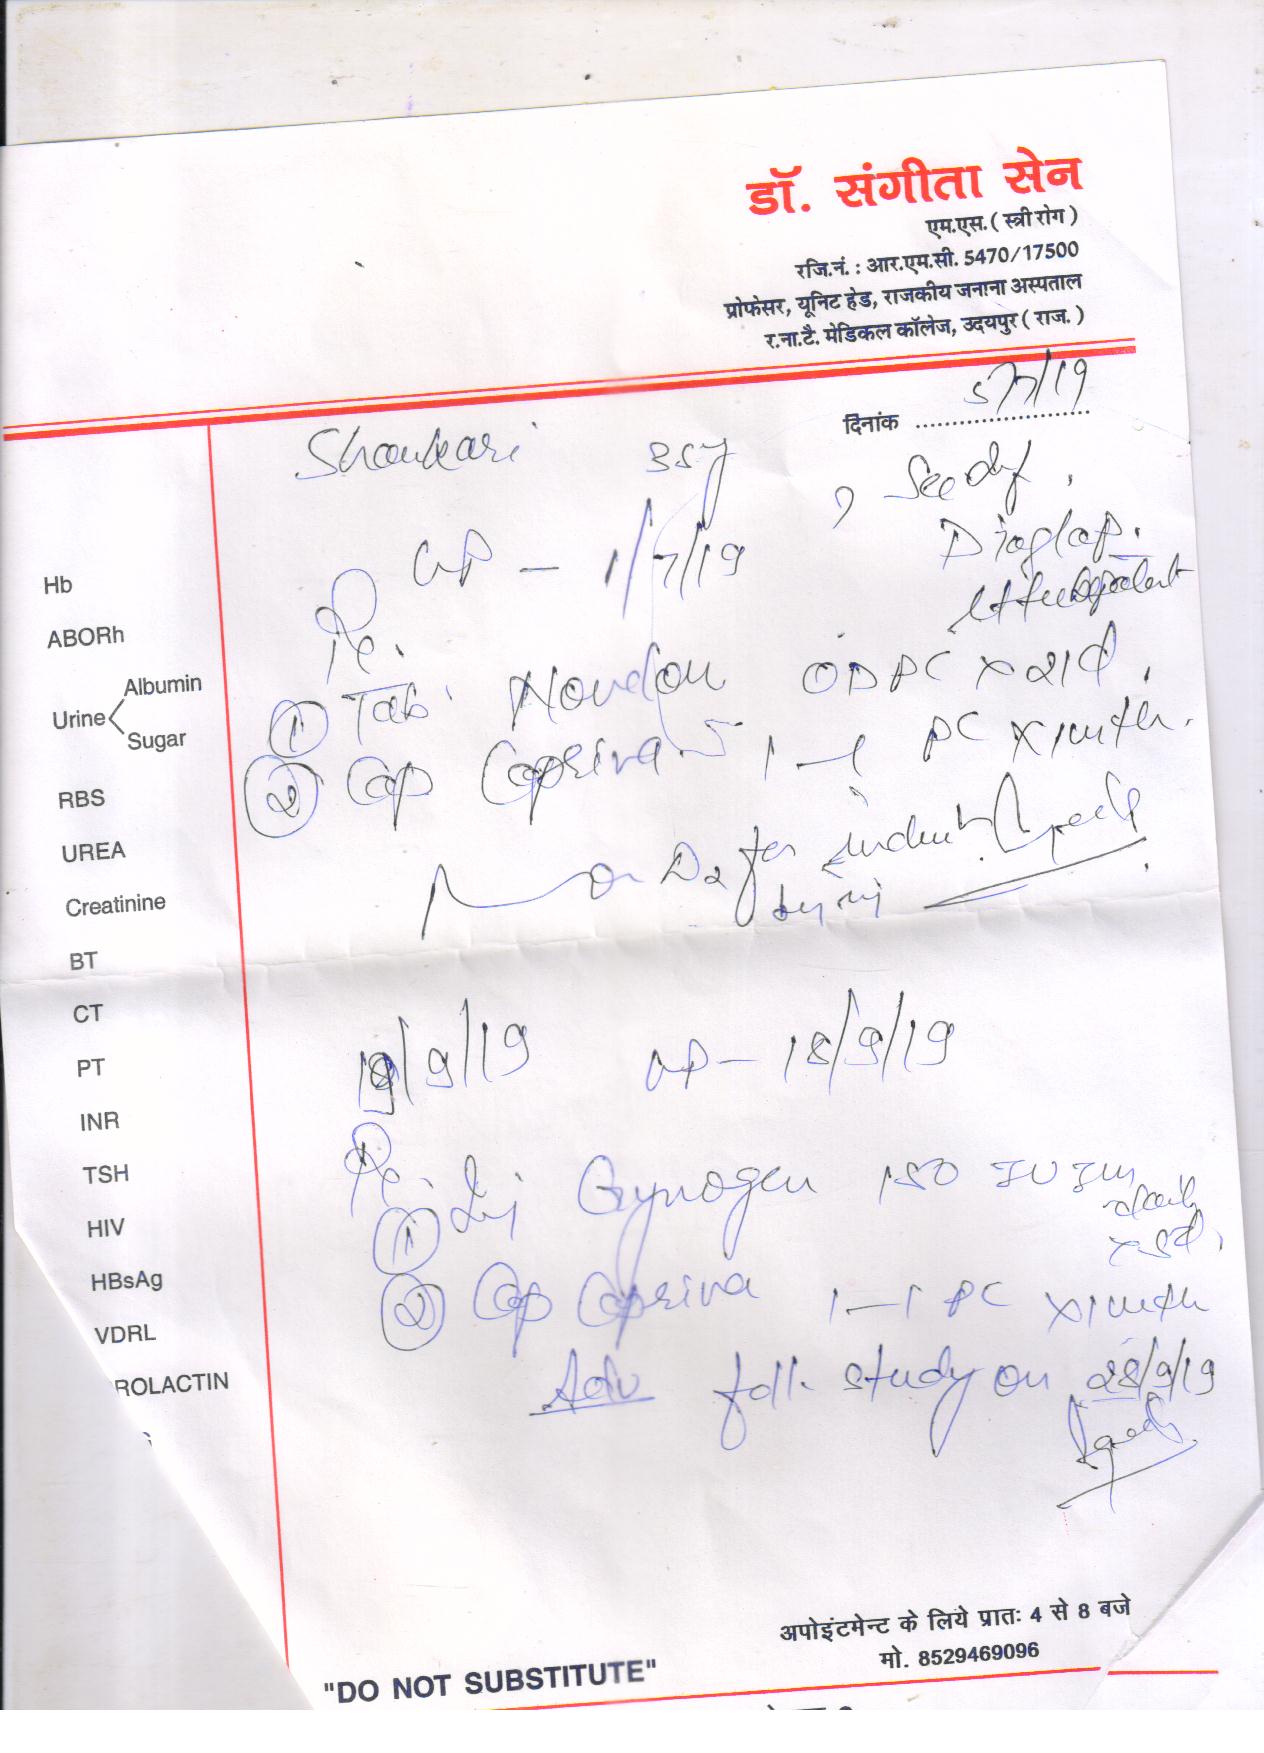 डॉ. संगीता सेन
एम.एस. ( स्त्री रोग )
रजि.नं. : आर.एम.सी. 5470/17500
प्रोफेसर, यूनिट हेड, राजकीय जनाना अस्पताल
र.ना.टै. मेडिकल कॉलेज, उदयपुर ( राज. )
दिनांक 5/7/19
Shankari 35y
- 1/7/19
Hb
ABORh
Urine
Albumin
Sugar
RBS
UREA
Creatinine
BT
CT
PT
INR
TSH
HIV
HBsAg
VDRL
ROLACTIN
Diaglap.
① Tab. OD PC x 21d.
② Cap Capriva 1-1 PC x 1 mth.
on D2 for
19/9/19 - 18/9/19
① Inj Gynogen 150 IU Im daily x 5d.
② Cap Capriva 1-1 PC x 1 mth
Adv foll. study on 28/9/19
अपोइंटमेन्ट के लिये प्रातः 4 से 8 बजे
मो. 8529469096
"DO NOT SUBSTITUTE"